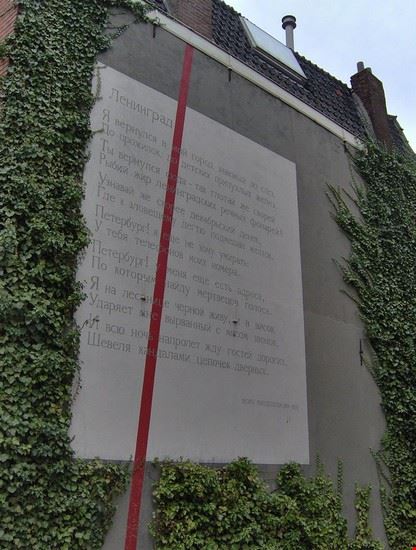 Ленинград
Я вернулся в мой город, знакомый до слёз,
До прожилок, до детских припухлых желез.
Ты вернулся сюда – так глотай же скорей
Рыбий жир ленинградских речных фонарей!
Узнавай же скорее декабрьский денёк,
Где к зловещему дегтю подмешан желток.
Петербург! я ещё не хочу умирать:
У тебя телефонов моих номера.
Петербург! у меня ещё есть адреса,
По которым найду мертвецов голоса.
Я на лестнице чёрной живу, и в висок
Ударяет мне вырванный с мясом звонок,
И всю ночь напролет жду гостей дорогих,
Шевеля кандалами цепочек дверных.